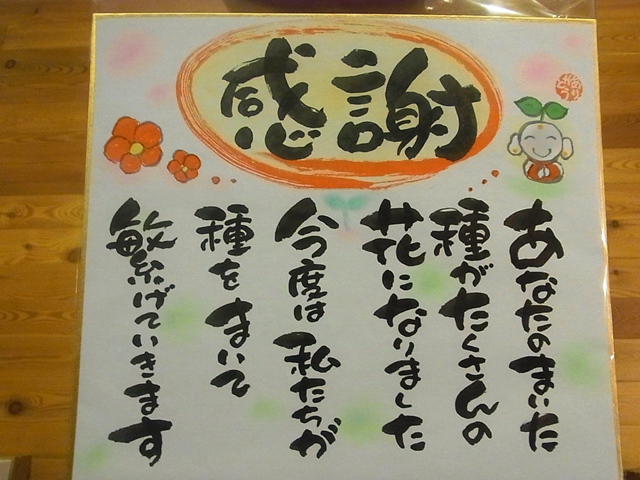 感謝
あなたのまいた
種がたくさんの
花になりました
今度は私たちが
種をまいて
繁げていきます